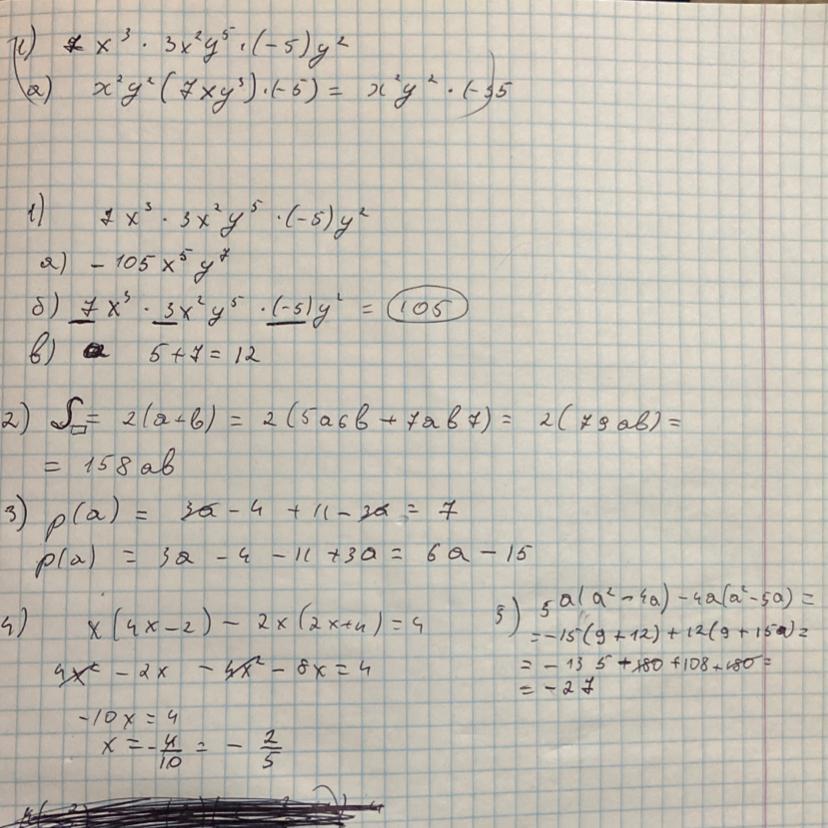 1) 7 x³ · 3x²y⁵ · (-5)y²
а) x²y²(7xy³)·(-5) = x²y² · (-35
1) 7x³ · 3x²y⁵ · (-5)y²
а) - 105x⁵y⁷
б) 7x³ · 3x²y⁵ · (-5)y² = 105
в) 5+7 = 12
2) S▭ = 2(a+b) = 2(5a6b + 7ab7) = 2(79ab) =
= 158ab
3) p(a) = 3a - 4 + 11 - 3a = 7
p(a) = 3a - 4 - 11 + 3a = 6a - 15
4) x(4x-2) - 2x(2x+4) = 4
4x² - 2x - 4x² - 8x = 4
-10x = 4
x = -4/10 = - 2/5
5) 5a(a² - 4a) - 4a(a² - 5a) =
= -15(9+12) + 12(9+15a) =
= - 135 + 180 + 108 + 180 =
= - 27